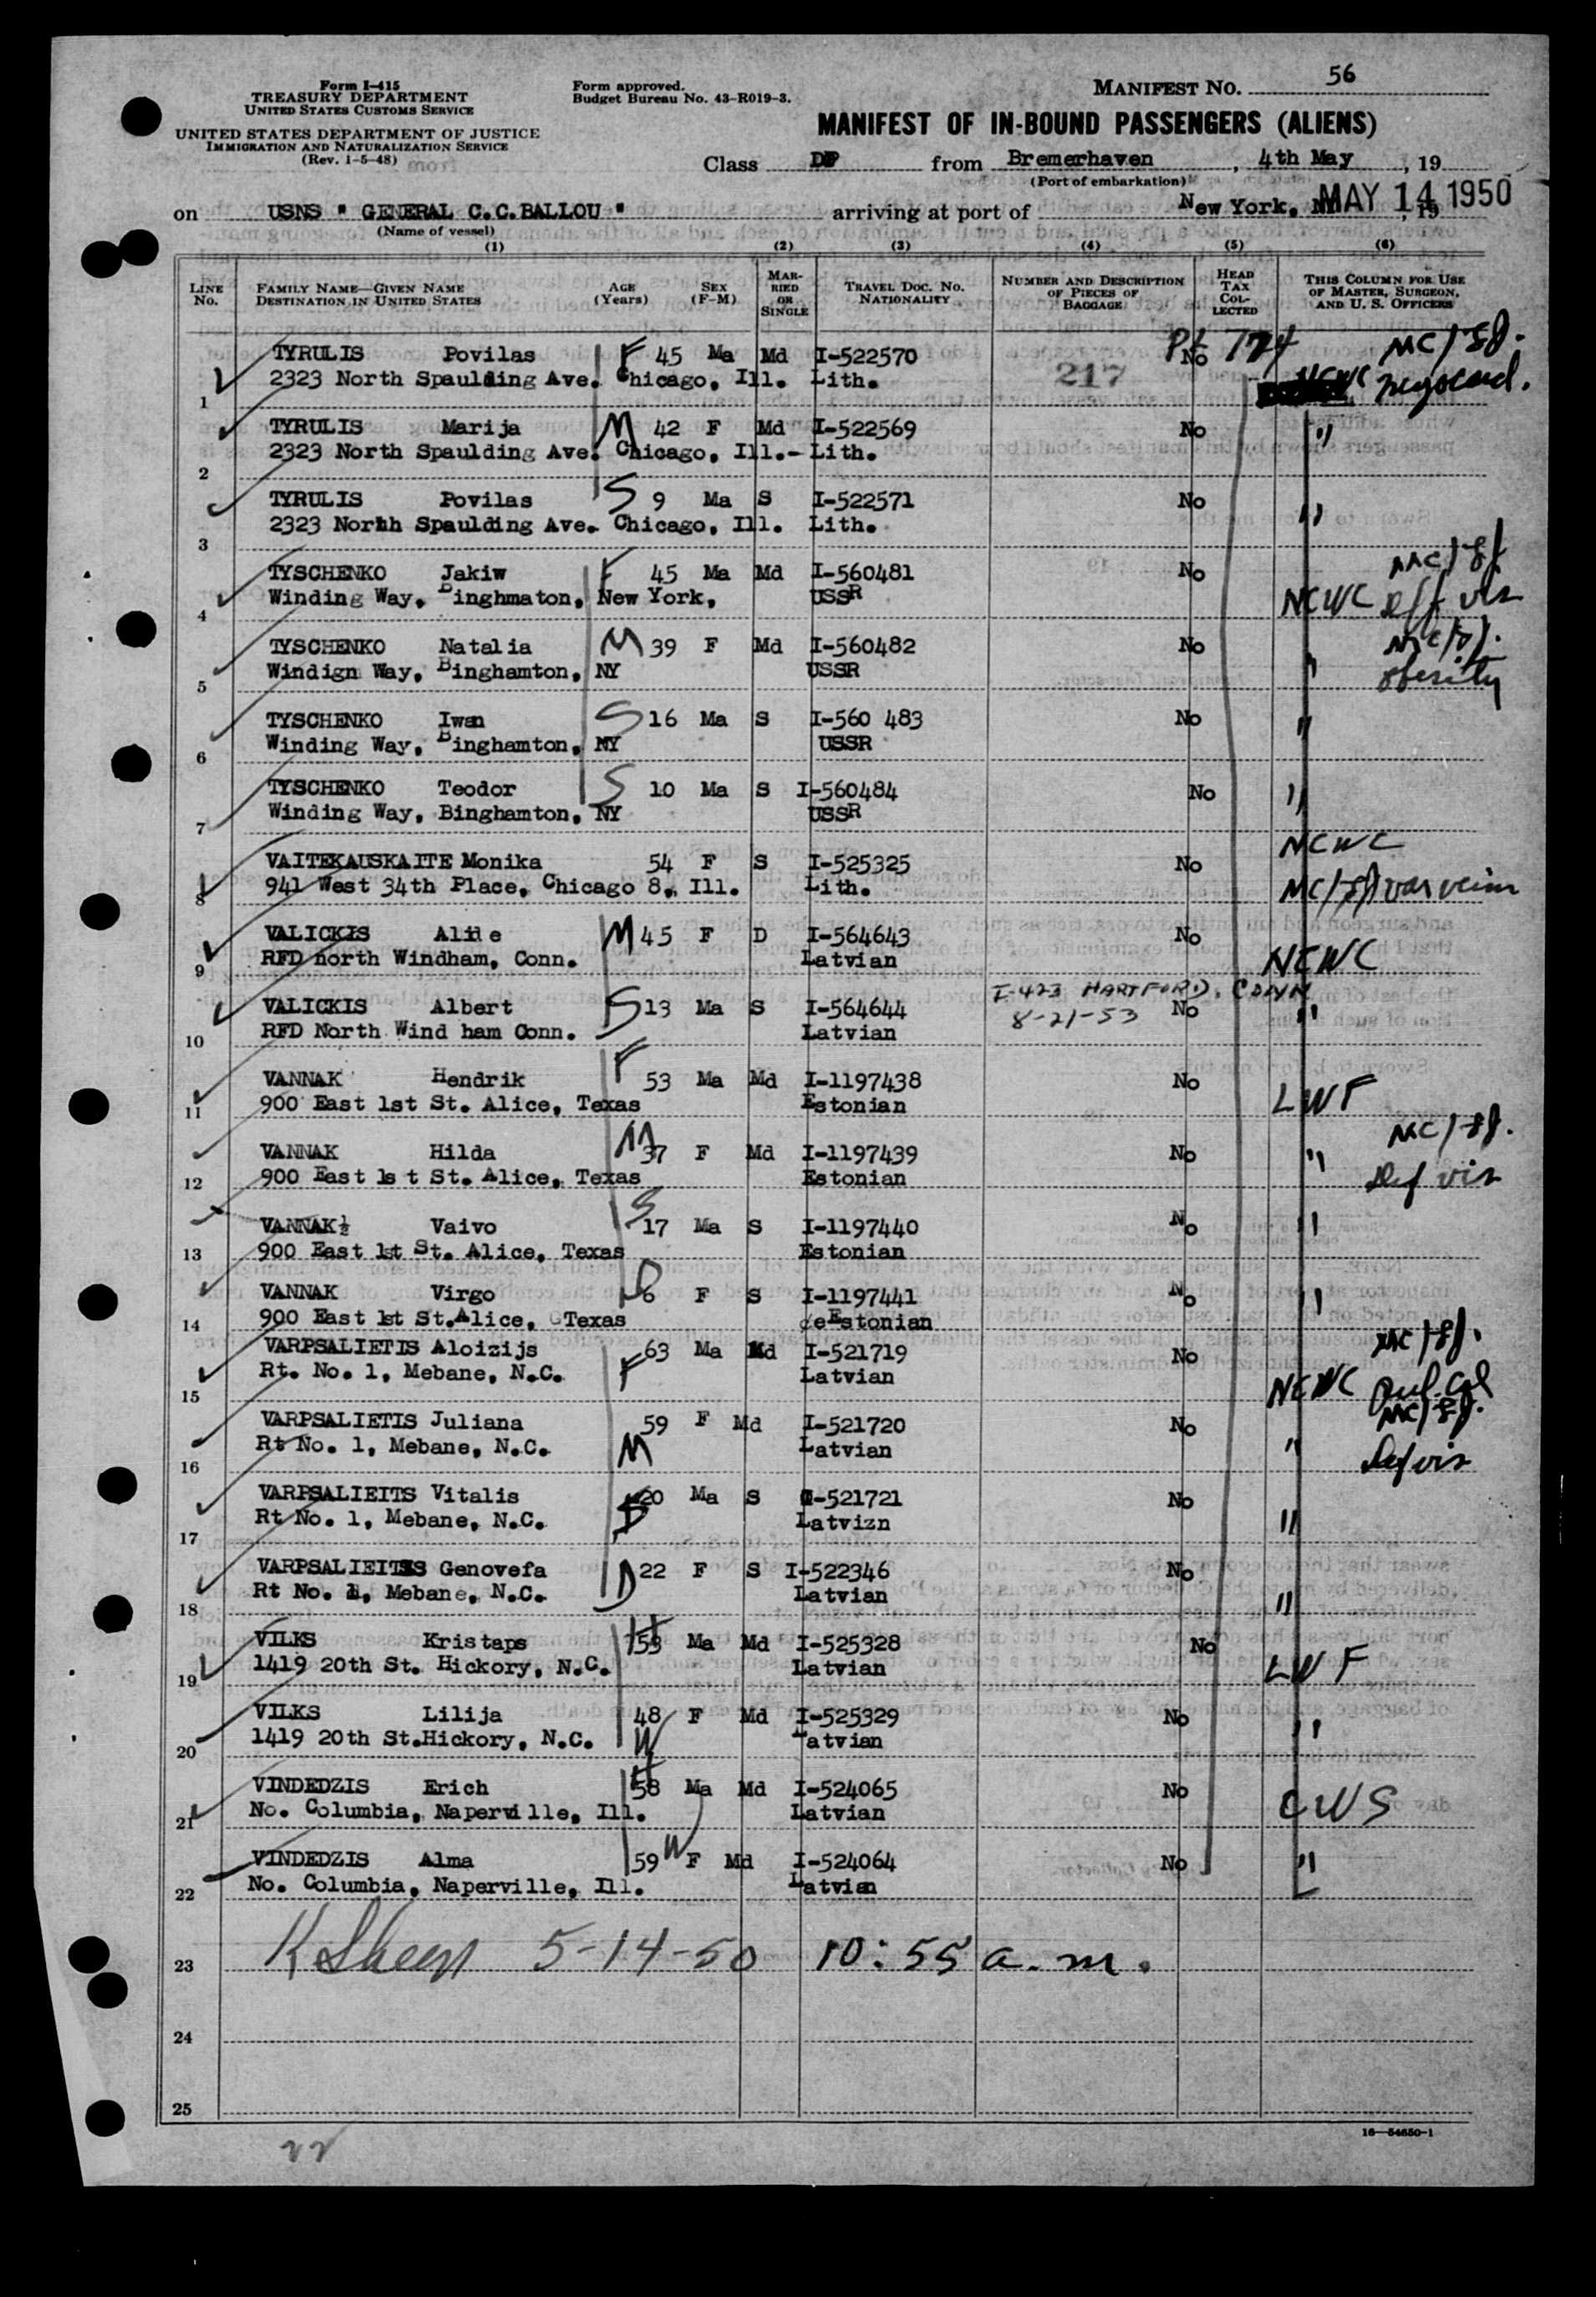 Form I-415
TREASURY DEPARTMENT
UNITED STATES CUSTOMS SERVICE
UNITED STATES DEPARTMENT OF JUSTICE
IMMIGRATION AND NATURALIZATION SERVICE
(Rev. 1-5-48)
Form approved.
Budget Bureau No. 43-R019-3.
MANIFEST NO. 56
MANIFEST OF IN-BOUND PASSENGERS (ALIENS)
Class DP from Bremerhaven, 4th May, 19
(Port of embarkation)
on USNS " GENERAL C.C.BALLOU " arriving at port of New York, MAY 14 1950, 19
(Name of vessel)
(1) (2) (3) (4) (5) (6)
LINE No. FAMILY NAME—GIVEN NAME DESTINATION IN UNITED STATES AGE (Years) SEX (F-M) MARRIED OR SINGLE TRAVEL DOC. NO. NATIONALITY NUMBER AND DESCRIPTION OF PIECES OF BAGGAGE HEAD TAX COLLECTED THIS COLUMN FOR USE OF MASTER, SURGEON, AND U. S. OFFICERS
TYRULIS Povilas F 45 Ma Md I-522570 No
1 2323 North Spaulding Ave. Chicago, Ill. Lith. 217 NCWC
TYRULIS Marija M 42 F Md I-522569 No "
2 2323 North Spaulding Ave. Chicago, Ill.- Lith.
TYRULIS Povilas S 9 Ma S I-522571 No "
3 2323 Norhh Spaulding Ave. Chicago, Ill. Lith.
TYSCHENKO Jakiw F 45 Ma Md I-560481 No
4 Winding Way, Binghmaton, New York, USSR NCWC
TYSCHENKO Natalia M 39 F Md I-560482 No
5 Windign Way, Binghamton, NY USSR " obesity
TYSCHENKO Iwan S 16 Ma S I-560 483 No "
6 Winding Way, Binghamton, NY USSR
TYSCHENKO Teodor S 10 Ma S I-560484 No "
7 Winding Way, Binghamton, NY USSR
VAITEKAUSKAITE Monika 54 F S I-525325 No NCWC
8 941 West 34th Place, Chicago 8, Ill. Lith.
VALICKIS Alide M 45 F D I-564643 No
9 RFD north Windham, Conn. Latvian NCWC
I-423 HARTFORD, CONN
VALICKIS Albert S 13 Ma S I-564644 8-21-53 No "
10 RFD North Wind ham Conn. Latvian
VANNAK Hendrik F 53 Ma Md I-1197438 No
11 900 East 1st St. Alice, Texas Estonian LWF
VANNAK Hilda M 37 F Md I-1197439 No "
12 900 East 1s t St. Alice, Texas Estonian Def vis
VANNAK½ Vaivo S 17 Ma S I-1197440 No "
13 900 East 1st St. Alice, Texas Estonian
VANNAK Virgo D 6 F S I-1197441 No "
14 900 East 1st St.Alice, Texas Estonian
VARPSALIETIS Aloizijs 63 Ma Md I-521719 No
15 Rt. No. 1, Mebane, N.C. F Latvian NCWC
VARPSALIETIS Juliana 59 F Md I-521720 No
16 Rt No. 1, Mebane, N.C. M Latvian " Def vis
VARPSALIEITS Vitalis 20 Ma S I-521721 No
17 Rt No. 1, Mebane, N.C. Latvizn "
VARPSALIEITIS Genovefa D 22 F S I-522346 No
18 Rt No. 1, Mebane, N.C. Latvian "
VILKS Kristaps H 53 Ma Md I-525328 No
19 1419 20th St. Hickory, N.C. Latvian LWF
VILKS Lilija 48 F Md I-525329 No
20 1419 20th St.Hickory, N.C. W Latvian "
VINDEDZIS Erich H 58 Ma Md I-524065 No
21 No. Columbia, Naperville, Ill. Latvian CWS
VINDEDZIS Alma 59 W F Md I-524064 No "
22 No. Columbia, Naperville, Ill. Latvian
23 5-14-50 10:55 a.m.
24
25
16—54650-1
22